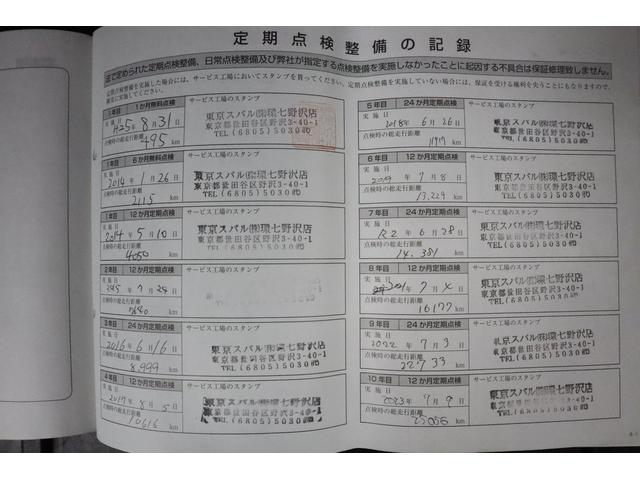 定期点検整備の記録
法で定められた定期点検整備、日常点検整備及び弊社が指定する点検整備を実施しなかったことに起因する不具合は保証修理致しません。
点検整備を実施した場合には、サービス工場においてスタンプを貰ってください。定期点検整備を実施していない場合には、保証を受ける権利を失うことにもなりますので、
1か月無料点検
サービス工場のスタンプ
実施日
H25年 8月31日
点検時の総走行距離
495 km
東京スバル㈱環七野沢店
東京都世田谷区野沢3-40-1
TEL(6805)5030㈹
1年目 6か月無料点検
サービス工場のスタンプ
実施日
2014年 1月26日
点検時の総走行距離
2115 km
東京スバル㈱環七野沢店
東京都世田谷区野沢3-40-1
TEL(6805)5030㈹
1年目 12か月定期点検
サービス工場のスタンプ
実施日
2014年 5月10日
点検時の総走行距離
4050 km
東京スバル㈱環七野沢店
東京都世田谷区野沢3-40-1
TEL(6805)5030㈹
2年目 12か月定期点検
サービス工場のスタンプ
実施日
点検時の総走行距離
km
3年目 24か月定期点検
サービス工場のスタンプ
実施日
2016年 6月16日
点検時の総走行距離
8,999 km
東京スバル㈱環七野沢店
東京都世田谷区野沢3-40-1
TEL(6805)5030㈹
4年目 12か月定期点検
サービス工場のスタンプ
実施日
2017年 8月5日
点検時の総走行距離
10616 km
東京スバル㈱環七野沢店
東京都世田谷区野沢3-40-1
TEL(6805)5030㈹
5年目 24か月定期点検
サービス工場のスタンプ
実施日
2018年 6月26日
点検時の総走行距離
km
東京スバル㈱環七野沢店
東京都世田谷区野沢3-40-1
TEL(6805)5030㈹
6年目 12か月定期点検
サービス工場のスタンプ
実施日
2019年 7月8日
点検時の総走行距離
13,229 km
東京スバル㈱環七野沢店
東京都世田谷区野沢3-40-1
TEL(6805)5030㈹
7年目 24か月定期点検
サービス工場のスタンプ
実施日
R2年 6月28日
点検時の総走行距離
14,381 km
東京スバル㈱環七野沢店
東京都世田谷区野沢3-40-1
TEL(6805)5030㈹
8年目 12か月定期点検
サービス工場のスタンプ
実施日
年 7月 日
点検時の総走行距離
16177 km
東京スバル㈱環七野沢店
東京都世田谷区野沢3-40-1
TEL(6805)5030㈹
9年目 24か月定期点検
サービス工場のスタンプ
実施日
2022年 7月3日
点検時の総走行距離
22733 km
東京スバル㈱環七野沢店
東京都世田谷区野沢3-40-1
TEL(6805)5030㈹
10年目 12か月定期点検
サービス工場のスタンプ
実施日
2023年 7月9日
点検時の総走行距離
25056 km
東京スバル㈱環七野沢店
東京都世田谷区野沢3-40-1
TEL(6805)5030㈹